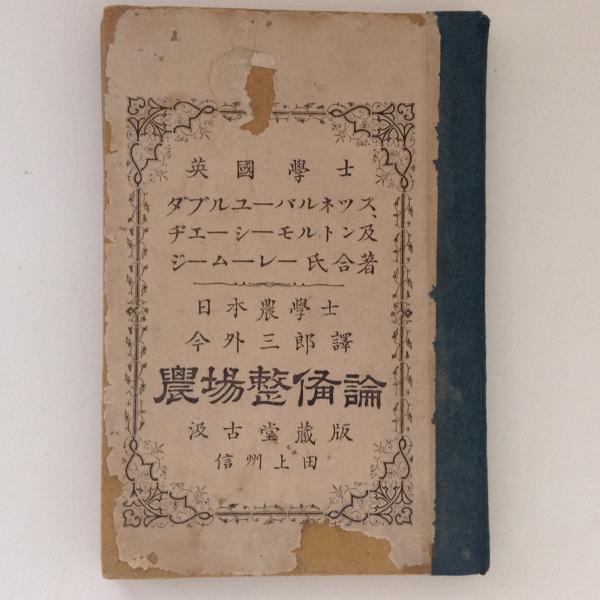 英國學士
ダブルユーバルネツス、
ヂエーシーモルトン及
ジームーレー氏合著
日本農學士
今外三郎譯
農場整俻論
汲古堂蔵版
信州上田